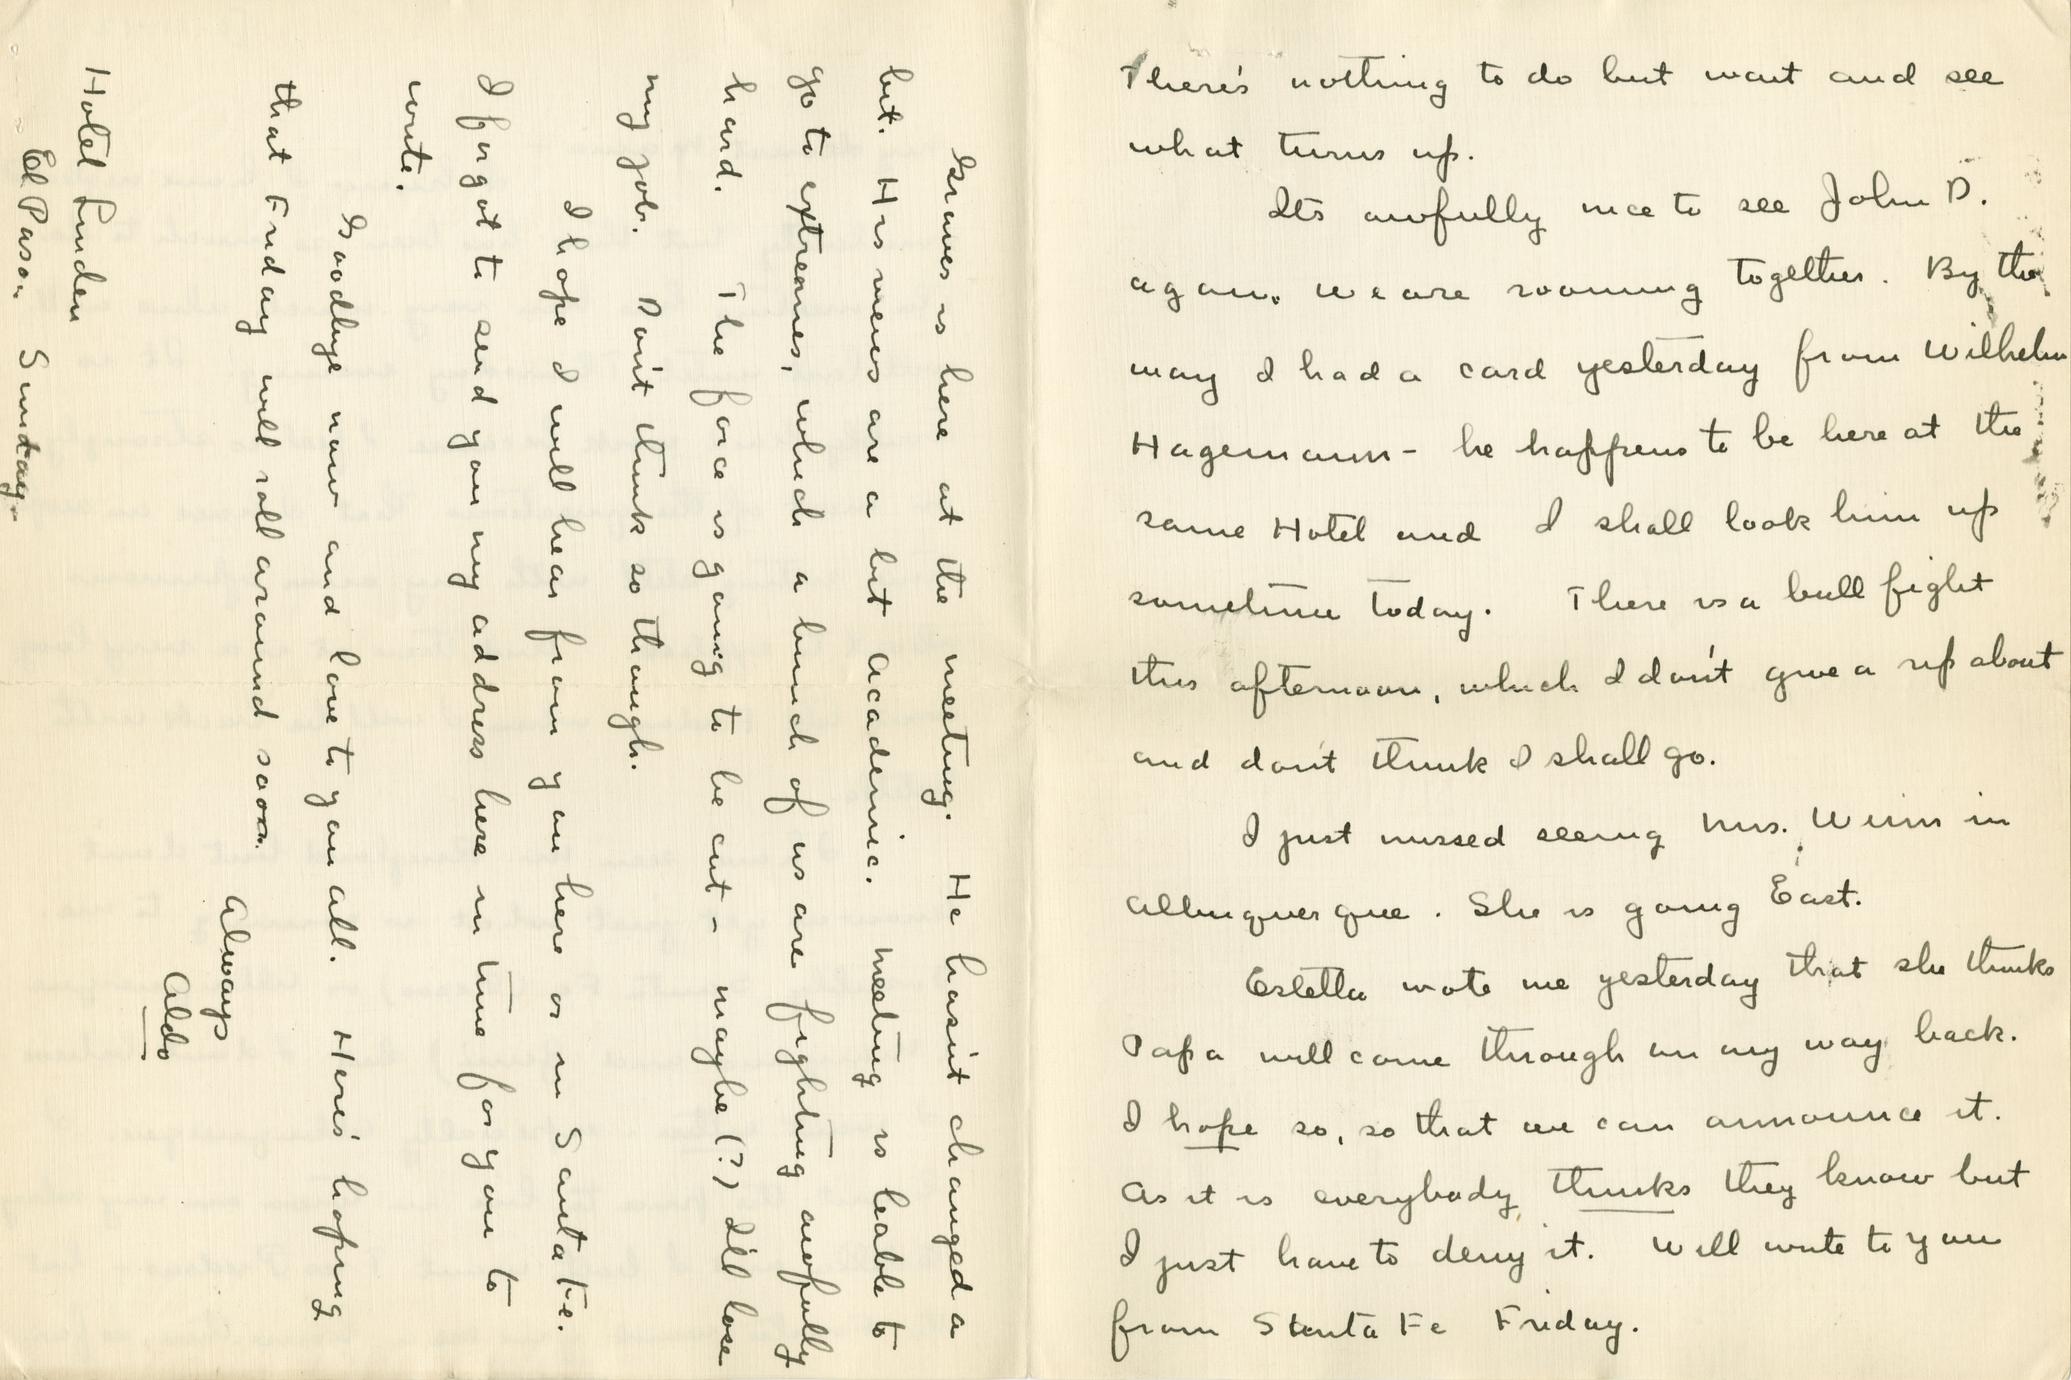 There's nothing to do but wait and see
what turns up.
Its awfully nice to see John D.
again. We are rooming together. By the
way I had a card yesterday from Wilhelm
Hagemann - he happens to be here at the
same Hotel and I shall look him up
sometime today. There is a bull fight
this afternoon, which I don't give a rip about
and don't think I shall go.
I just missed seeing Mrs. Winn in
Albuquerque. She is going East.
Estella wote me yesterday that she thinks
Papa will come through on my way back.
I hope so, so that we can announce it.
As it is everybody thinks they know but
I just have to deny it. Will write to you
from Santa Fe Friday.
Graves is here at the meeting. He hasn't changed a
bit. His views are a bit academic. Meeting is leable to
go to extreames, which a bunch of us are fighting awfully
hard. The force is going to be cut - maybe (?) I'll lose
my job. Don't think so though.
I hope I will hear from you here or in Santa Fe.
I forgot to send you my address here in time for you to
write.
Goodbye now and love to you all. Here's hoping
that Friday will roll around soon.
Always
Aldo
Hotel Linden
El Paso. Sunday.